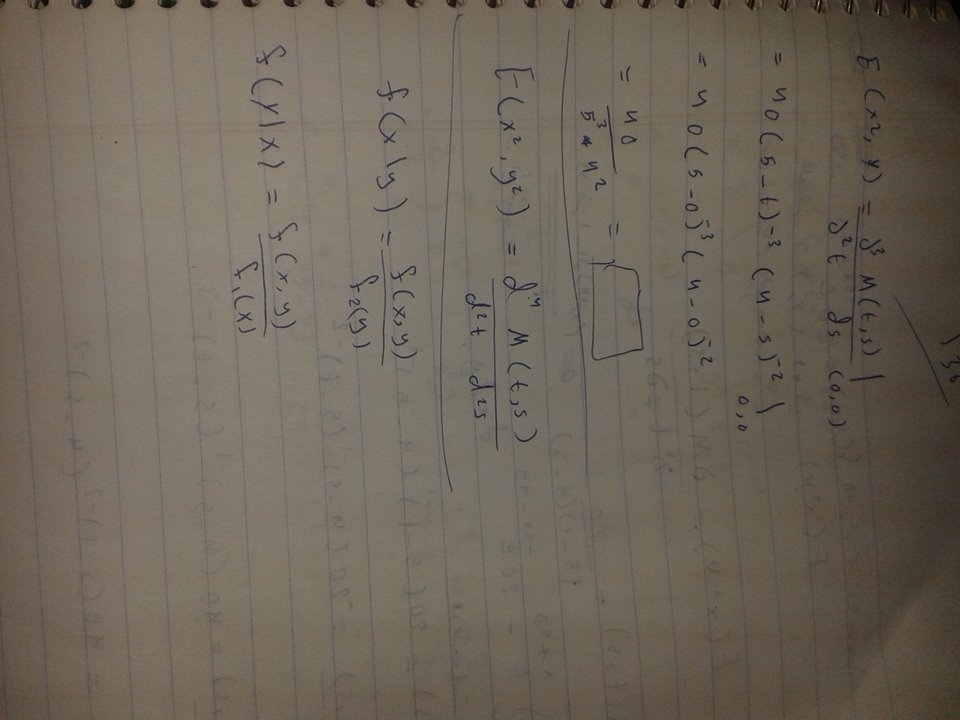 E (x2, y) = ∂³ M(t,s) / ∂²t ds | (0,0)
= 40 (5-t)-3 (4-s)-2 | 0,0
= 40 (5-0)-3 (4-0)-2
= 40 / 5³ * 4² =
E(x², y²) = d⁴ M(t,s) / d²t d²s
f(x|y) = f(x,y) / f₂(y)
f(y|x) = f(x,y) / f₁(x)